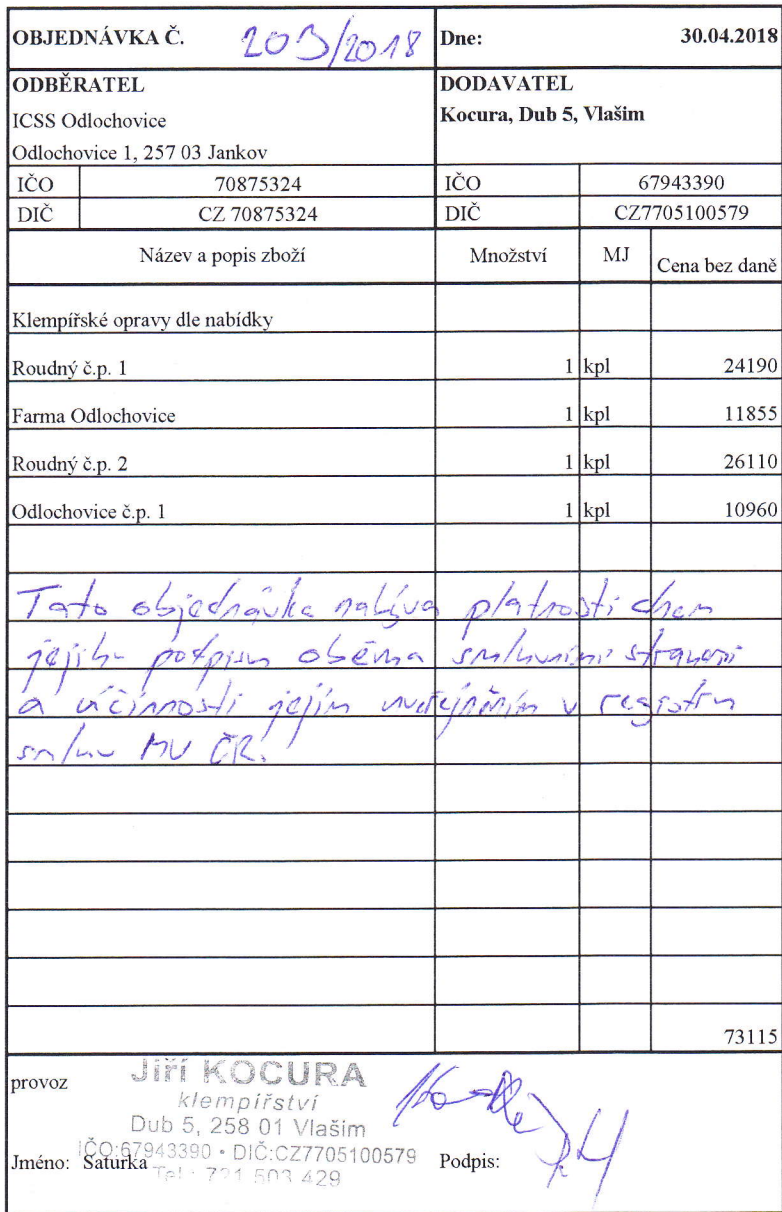 OBJEDNÁVKA Č. 203/2018 Dne: 30.04.2018
ODBĚRATEL DODAVATEL
ICSS Odlochovice Kocura, Dub 5, Vlašim
Odlochovice 1, 257 03 Jankov
IČO 70875324 IČO 67943390
DIČ CZ 70875324 DIČ CZ7705100579
Název a popis zboží Množství MJ Cena bez daně
Klempířské opravy dle nabídky
Roudný č.p. 1 1 kpl 24190
Farma Odlochovice 1 kpl 11855
Roudný č.p. 2 1 kpl 26110
Odlochovice č.p. 1 1 kpl 10960
Tato objednávka nabývá platnosti dnem
jejího podpisu oběma smluvními stranami
a účinnosti jejím uveřejněním v registru
smluv MV ČR.
73115
provoz
Jiří KOCURA
klempířství
Dub 5, 258 01 Vlašim
IČO:67943390 • DIČ:CZ7705100579
Tel.: 721 503 429
Jméno: Saturka Podpis: